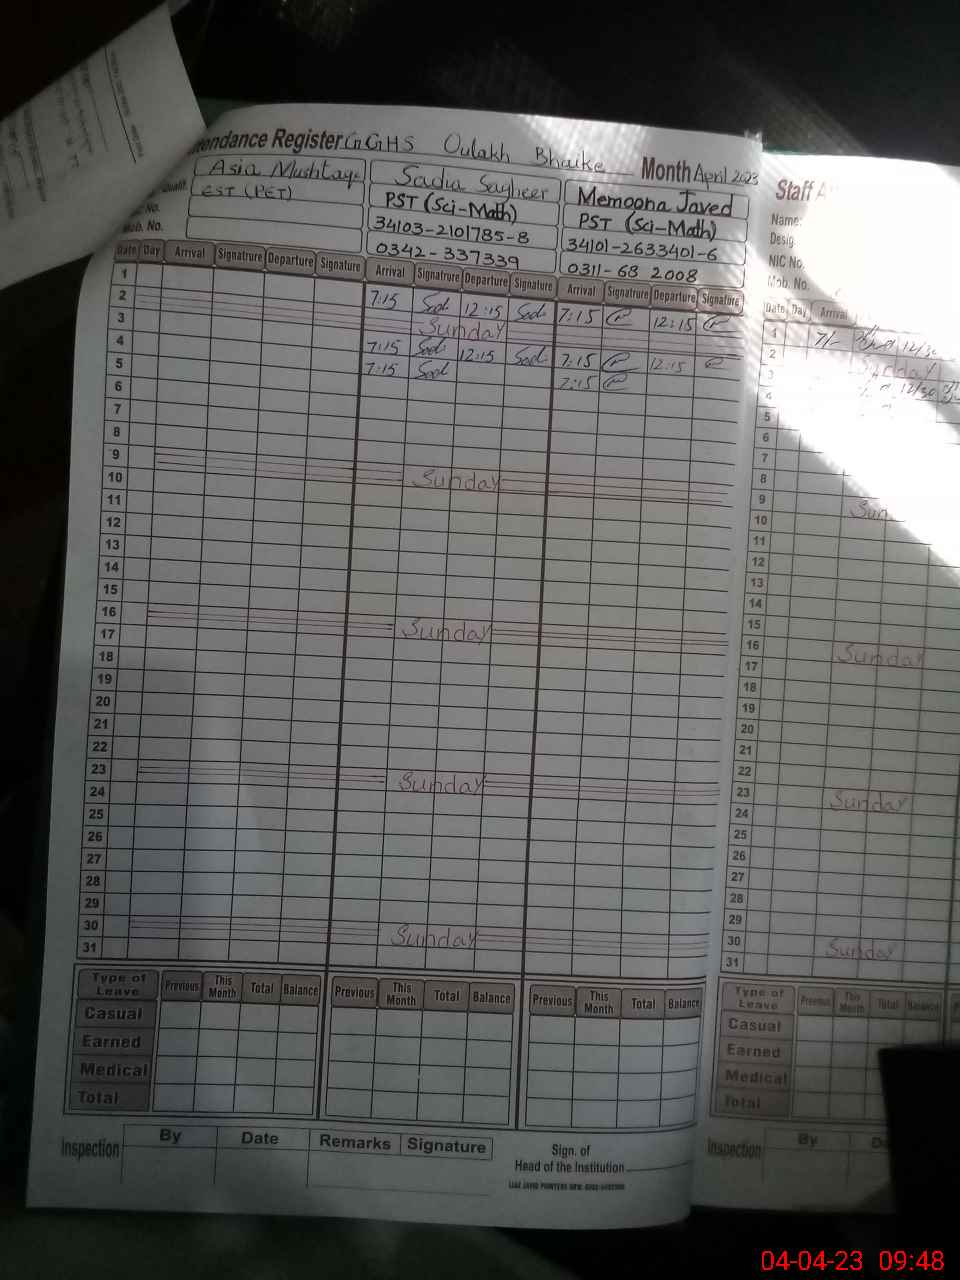 endance Register GGHS Oulakh Bhaike Month April 2023
Asia Mushtaq
EST (PET)
Sadia Saybeer
PST (Sci-Math)
34103-2101785-8
0342-337339
Memoona Javed
PST (Sci-Math)
34101-2633401-6
0311-68 2008
Qualif.
No.
Mob. No.
Date Day Arrival Signatrure Departure Signature Arrival Signatrure Departure Signature Arrival Signatrure Departure Signature
1 7:15 Sad 12:15 Sad 7:15 12:15
2 Sunday
3 7:15 Sad 12:15 Sad 7:15 12:15
4 7:15 Sad 7:15
5
6
7
8
9 Sunday
10
11
12
13
14
15
16 Sunday
17
18
19
20
21
22
23 Sunday
24
25
26
27
28
29
30 Sunday
31
Type of Leave Previous This Month Total Balance Previous This Month Total Balance Previous This Month Total Balance
Casual
Earned
Medical
Total
Inspection By Date Remarks Signature
Sign. of
Head of the Institution
Staff A
Name:
Desig.
NIC No.
Mob. No.
Date Day Arrival
1 7/- 12/30
2 Sunday
3 12/30
4
5
6
7
8
9 Sun
10
11
12
13
14
15
16 Sunday
17
18
19
20
21
22
23 Sunday
24
25
26
27
28
29
30 Sunday
31
Type of Leave Previous This Month Total Balance
Casual
Earned
Medical
Total
Inspection By D
04-04-23 09:48